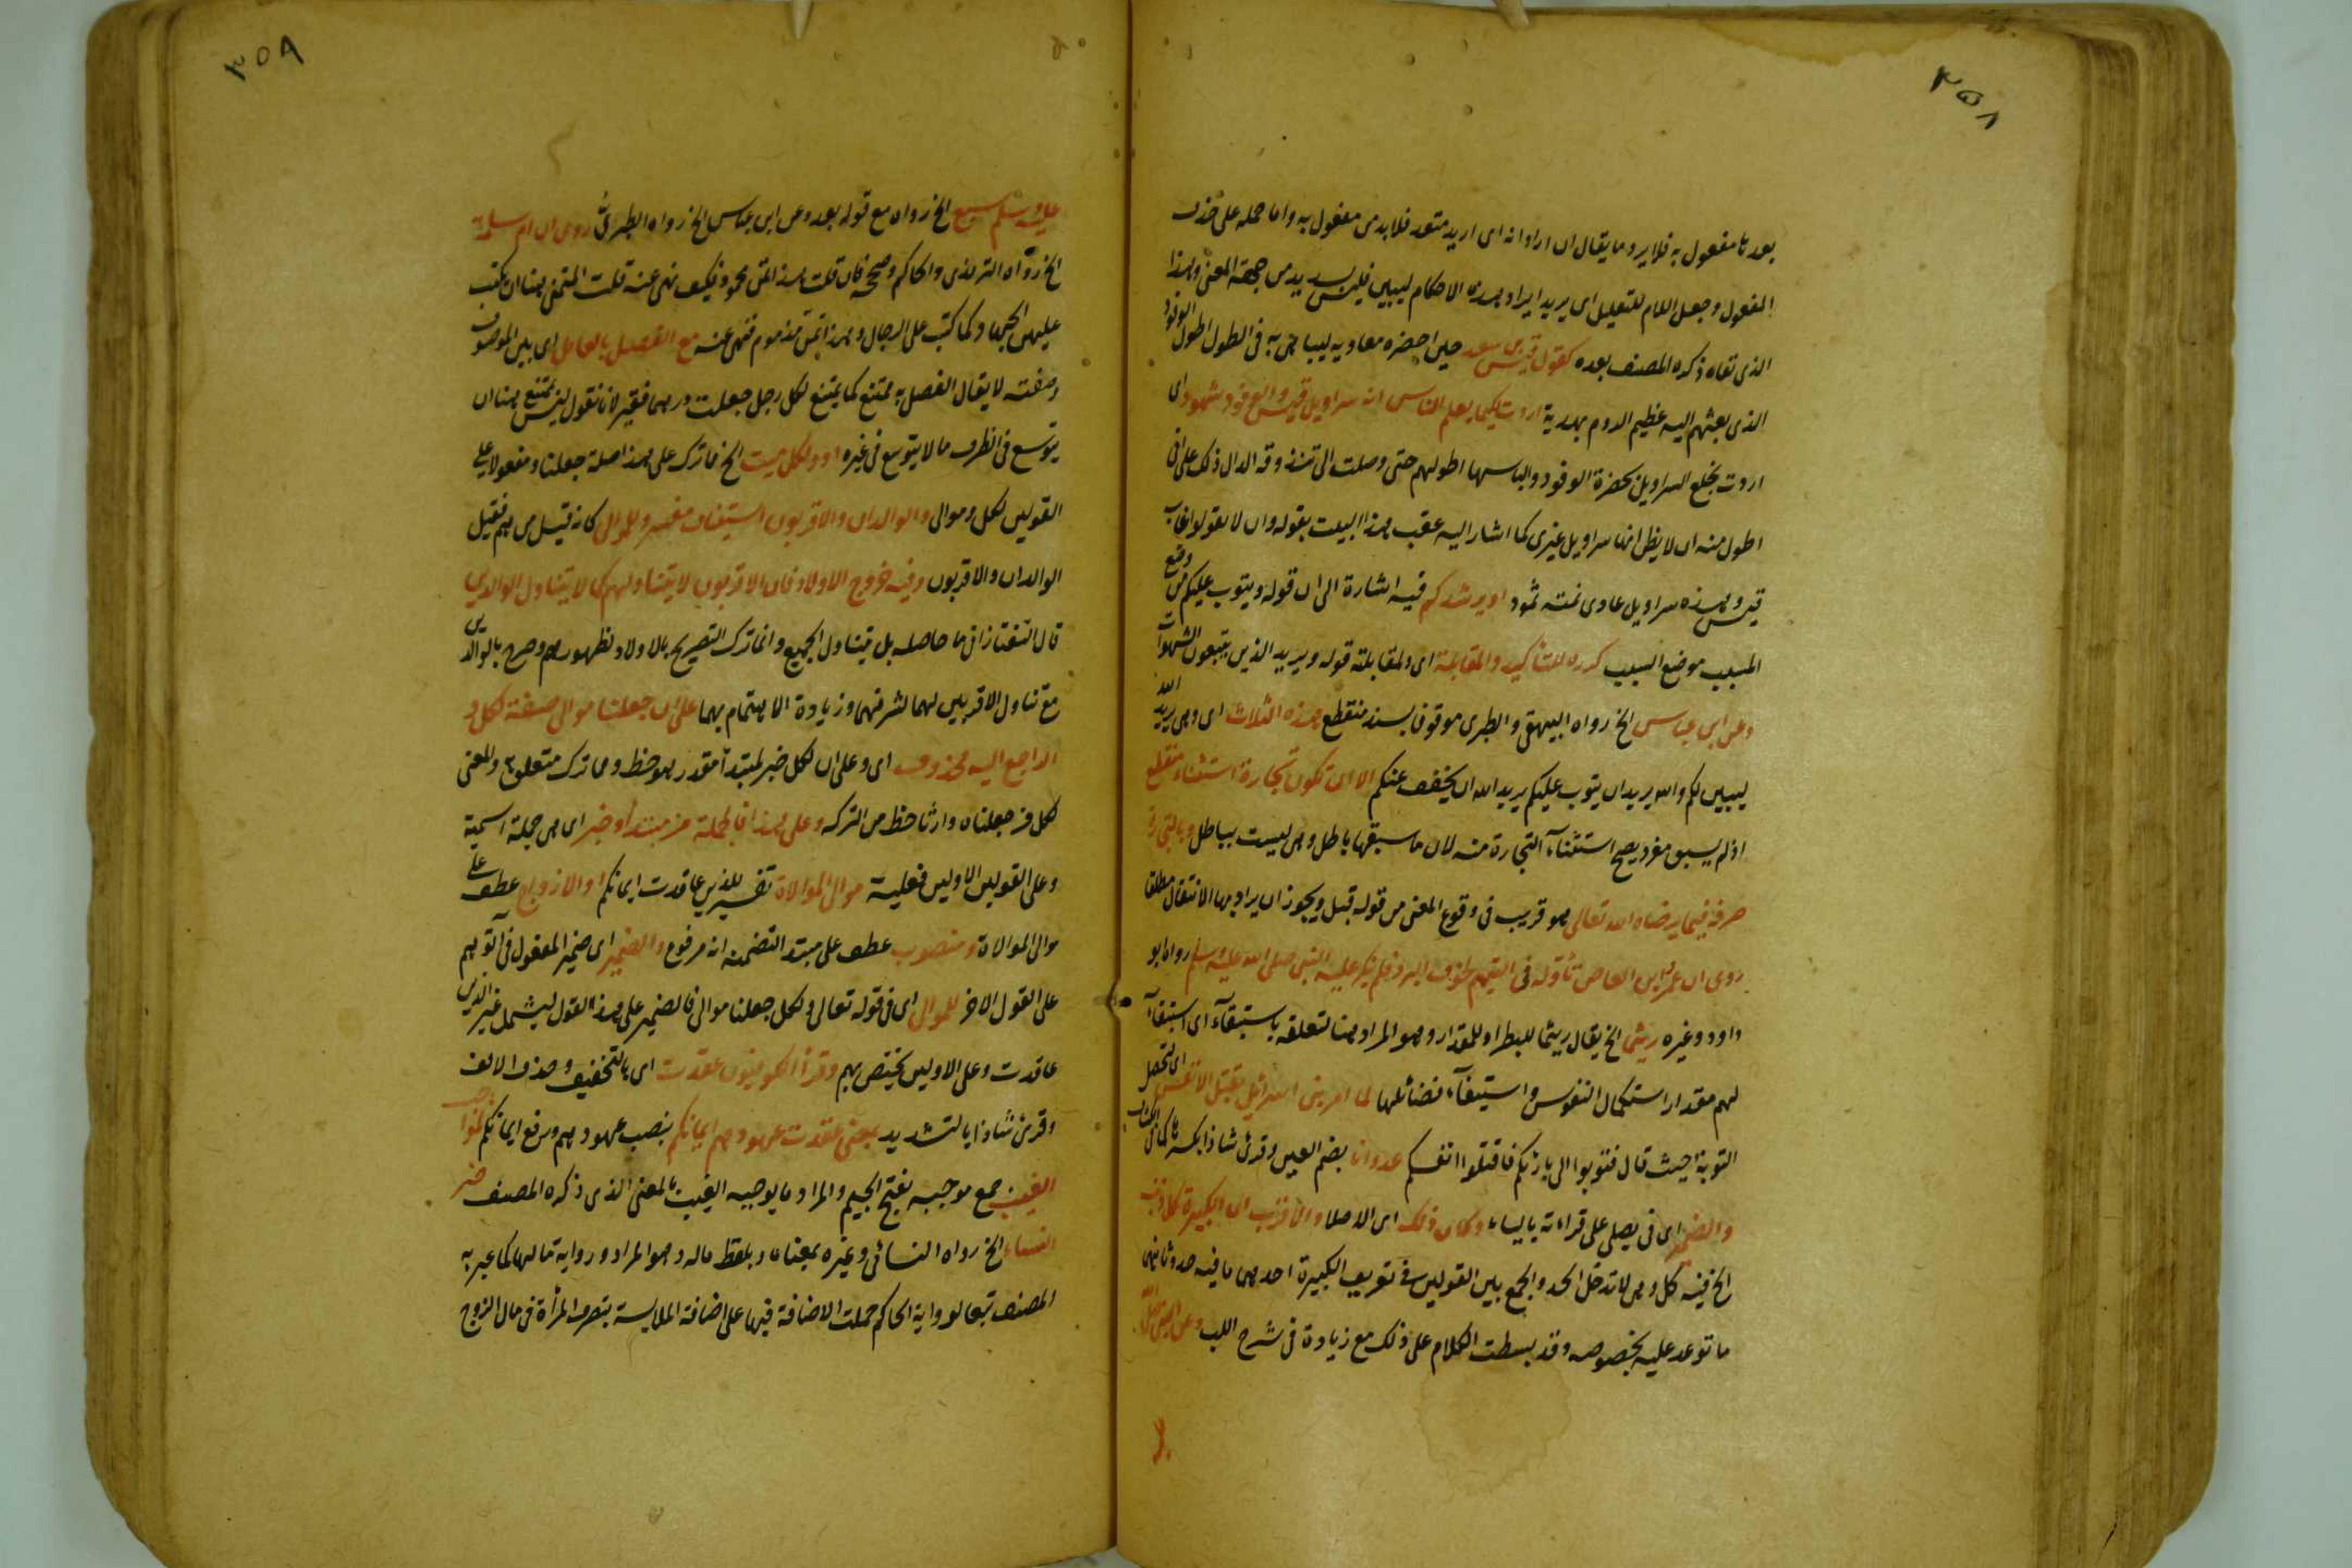 ٣٥٨
بعدها مفعول به فلا يرد وما يقال ان اراد انه اى اريد متعد فلا بد من مفعول به واما حمله على حذف
المفعول وجعل اللام للتعليل اى يريد ايراد هذه الاحكام ليبين فليس بسديد من جهة المعنى ولهذا
الذى نقله ذكره المصنف بعده كقول قيس بن سعد حين احضره معاوية ليباهى به فى الطول اطول الوفود
الذى بعثهم اليه عظيم الروم بهدية اردت لكيما يعلم الناس انه سراويل قيس والوفود شهود اى
اردت بخلع السراويل بحضرة الوفود والباسها اطولهم حتى وصلت الى تندوته الدال ذلك على انى
اطول منه ان لا يظن انها سراويل غيرى كما اشار اليه عقب هذا البيت بقوله وان لا يقولوا غاب
قيس وهذه سراويل عادى نمته ثمود او يرشدكم فيه اشارة الى ان قوله ويتوب عليكم من وضع
المسبب موضع السبب كرره للتأكيد والمقابلة اى ولمقابلة قوله ويريد الذين يتبعون الشهوات
وعن ابن عباس الخ رواه البيهقى والطبرى موقوفا بسند منقطع هذه الثلاث اى وهى يريد الله
ليبين لكم والله يريد ان يتوب عليكم يريد الله ان يخفف عنكم الا ان تكون تجارة استثناء منقطع
اذ لم يسبق مفرد يصح استثناء التجارة منه لان ما سبقها باطل وهى ليست بباطل وبالتجارة
صرفه فيما يرضاه الله تعالى هو قريب فى وقوع المعنى من قوله قبل ويجوز ان يراد بها الانتقال مطلقا
روى ان عمرو بن العاص تأوله فى التيمم لخوف البرد فلم ينكر عليه النبى صلى الله عليه وسلم رواه ابو
داود وغيره ريثما الخ يقال ريثما للبطء او للمقدار وهو المراد هنا لتعلقه باستبقاء اى استبقاء
لهم مقدار استكمال النفوس واستيفاء فضائلها لما امر بنى اسرائيل بقتل الانفس اى لتحصل
التوبة حيث قال فتوبوا الى بارئكم فاقتلوا انفسكم عدوانا بضم العين وقرئ شاذا بكسرها كما فى الكشاف
والضمير اى فى يصلى على قراءته بالياء وكان ذلك اى الاصلاء والاقرب ان الكبيرة كل ذنب
الخ فيه كل وهى لا تدخل الحد والجمع بين القولين فى تعريف الكبيرة احدهما ما فيه حد وثانيهما
ما توعد عليه بخصوصه وقد بسطت الكلام على ذلك مع زيادة فى شرح اللب وعن النبى صلى الله
٣٥٩
عليه وسلم سبع الخ رواه مع قوله بعد وعن ابن عباس الخ رواه الطبرى روى ان ام سلمة
الخ رواه الترمذى والحاكم وصححه فان قلت هذا تمنى محمود فكيف نهى عنه قلت المتمنى هنا ان يكتب
عليهن الجهاد كما كتب على الرجال وهذا تمن مذموم فنهى عنه مع الفصل بالعامل اى بين الموصوف
وصفته لا يقال الفصل به ممتنع كما يمتنع لكل رجل جعلت درهما فقير لانا نقول ليس بممتنع هنا لان
يتوسع فى الظرف ما لا يتوسع فى غيره او ولكل ميت الخ فما ترك على هذا صلة جعلنا ومفعولا على
القولين لكل وموالى والوالدان والاقربون استيناف مفسر للموالى كانه قيل من هم فقيل
الوالدان والاقربون وفيه خروج الاولاد فان الاقربون لا يتناولهم كما لا يتناول الوالدين
قال التفتازانى ما حاصله بل يتناول الجميع وانما ترك التصريح بالاولاد لظهورهم وصرح بالوالدين
مع تناول الاقربين لهما لشرفهما وزيادة الاهتمام بهما على ان جعلنا موالى صفة لكل و
الراجع اليه محذوف اى وعلى ان لكل خبر لمبتدأ مقدر هو حظ ومما ترك متعلق به والمعنى
لكل من جعلناه وارثا حظ من التركة وعلى هذا فالجملة من مبتدأ وخبر اى هى جملة اسمية
وعلى القولين الاولين فعلية موالى الموالاة تفسير للذين عاقدت ايمانكم او الازواج عطف على
موالى الموالاة ومنصوب عطف على مبتدا لتضمنه انه مرفوع والضمير اى ضمير المفعول فى آتوهم
على القول الاخر للموالى اى فى قوله تعالى ولكل جعلنا موالى فالضمير على هذا القول ليشمل غير الذين
عاقدت وعلى الاولين يختص بهم وقرأ الكوفيون عقدت اى بالتخفيف وحذف الالف
وقرئ شاذا بالتشديد بمعنى عقدت عهودهم ايمانكم بنصب عهودهم ورفع ايمانكم لمواجب
الغيب جمع موجبه بفتح الجيم والمراد ما يوجبه الغيب بالمعنى الذى ذكره المصنف خير
النساء الخ رواه النسائى وغيره بمعناه وبلفظ ماله وهو المراد ورواية مالها كما عبر به
المصنف تبعا لرواية الحاكم حملت الاضافة فيها على اضافة الملابسة بتصرف المرأة فى مال الزوج